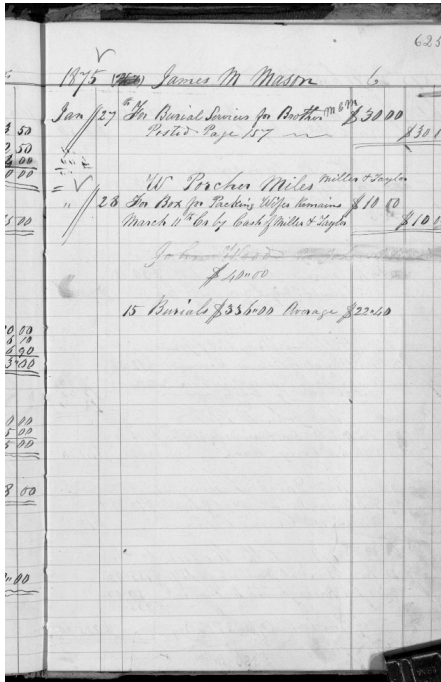 625
1875 James M Mason 6
Jan 27th For Burial Services for Brother M & M $30 00
Posted Page 157 $30 0
W Porcher Miles Miller & Taylor
" 28 For Box for Packing Wifes Remains $10 00
March 11th Cr by Cash of Miller & Taylor $10 0
$40"00
15 Burials $336"00 Average $22"40
3 50
2 50
6 00
0 00
5 00
0 00
6 10
6 90
3"00
0 00
5 00
5 00
8 00
"00